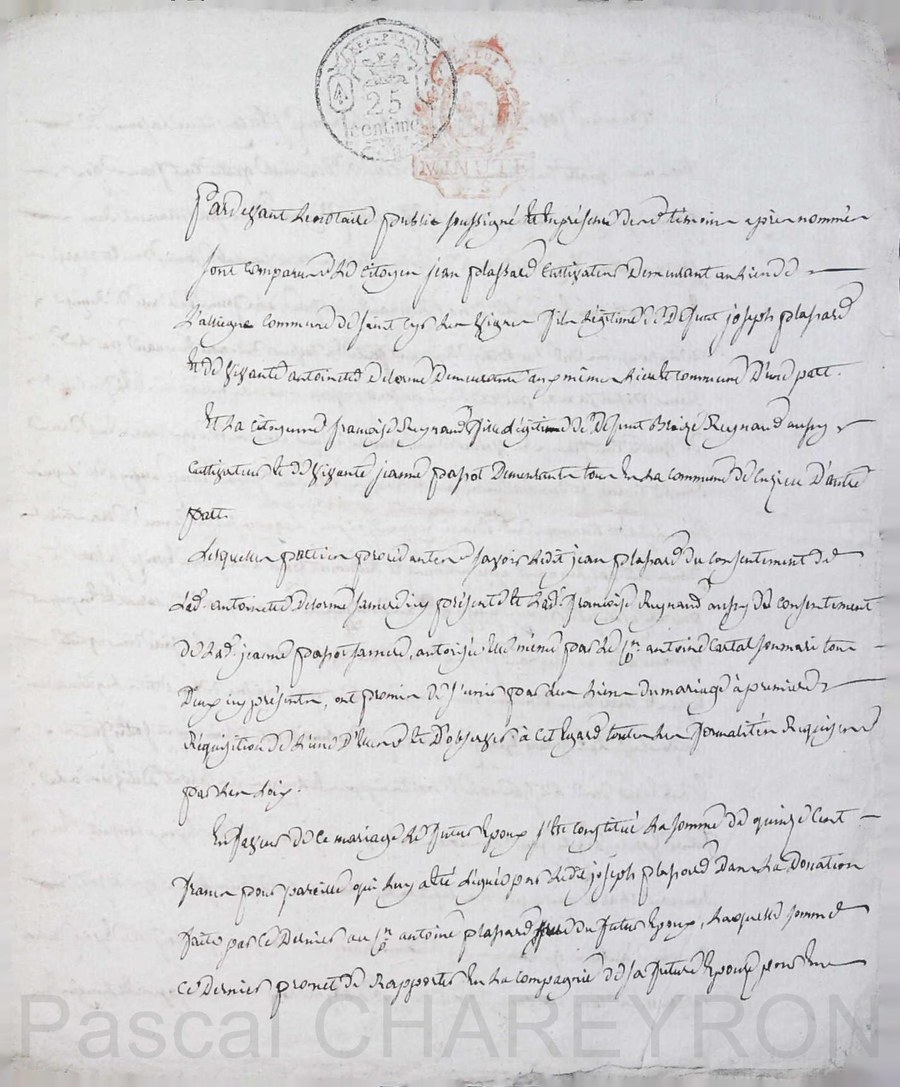 25
centime
MINUTE
Pardevant Le notaire public soussigné Et En présence des témoins après nommés
sont comparus Le Citoyen jean plassard Cultivateur Demeurant au Lieu de
L'assieque Commune de saint Cyr Les Vignes fils Légitime de Defunt joseph plassard
Et de vivante antoinette Delorme Demeurante aux même Lieu et Commune D'une part.
Et La Citoyenne françoise Reynaud fille Légitime de Defunt Blaize Reynaud aussy
Cultivateur Et de vivante jeanne papot Demeurante tous En La Commune de Cuzieu D'autre
part.
Lesquelles parties procédantes savoir Ledit jean plassard du consentement de
Lad. antoinette Delorme sa mère icy présente Et Lad. françoise Reynaud aussy du consentement
de Lad. jeanne papot sa mère, autorisée Elle même par Le sr. antoine Cartal son mari tous
Deux icy présents, ont promis de s'unir par les Liens du mariage à première
Réquisition de L'une D'Elles Et D'observer à Cet Egard toutes Les formalités Requises
par Les Loix.
En faveur de ce mariage Le futur Epoux s'est Constitué La somme de quinze Cent
francs pour pareille qui Luy a été Léguée par Ledit joseph plassard Dans La Donation
faite par ce Dernier au sr. antoine plassard frere du futur Epoux, Laquelle somme
ce Dernier promet de Rapporter En La Compagnie de sa future Epouse pour Une
Pascal CHAREYRON